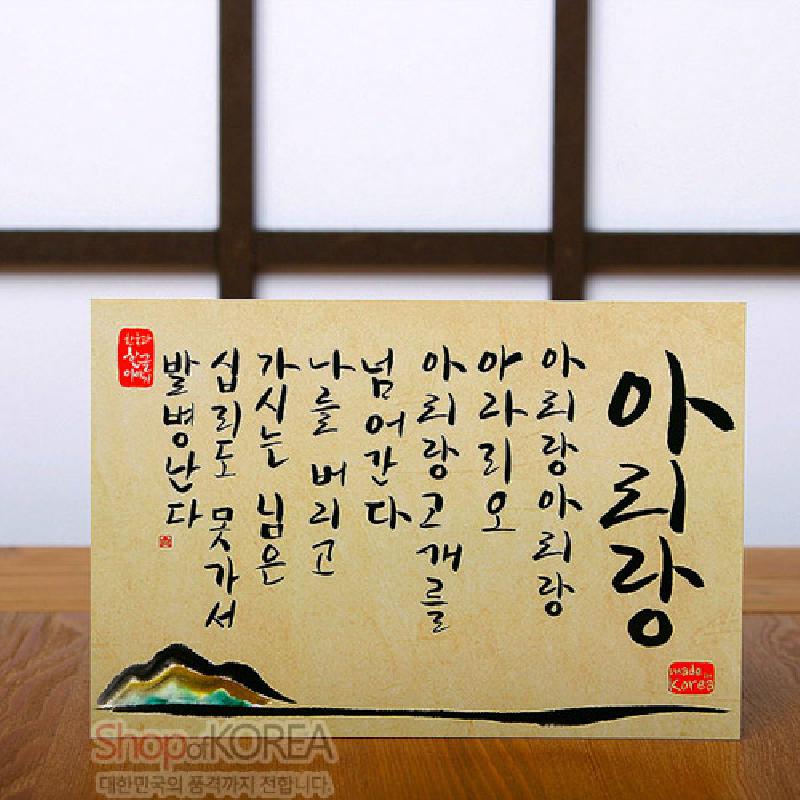 아리랑
아리랑아리랑
아라리오
아리랑고개를
넘어간다
나를 버리고
가시는 님은
십리도 못가서
발병난다
한글이야기
made in
Korea
Shop of KOREA
대한민국의 품격까지 전합니다.